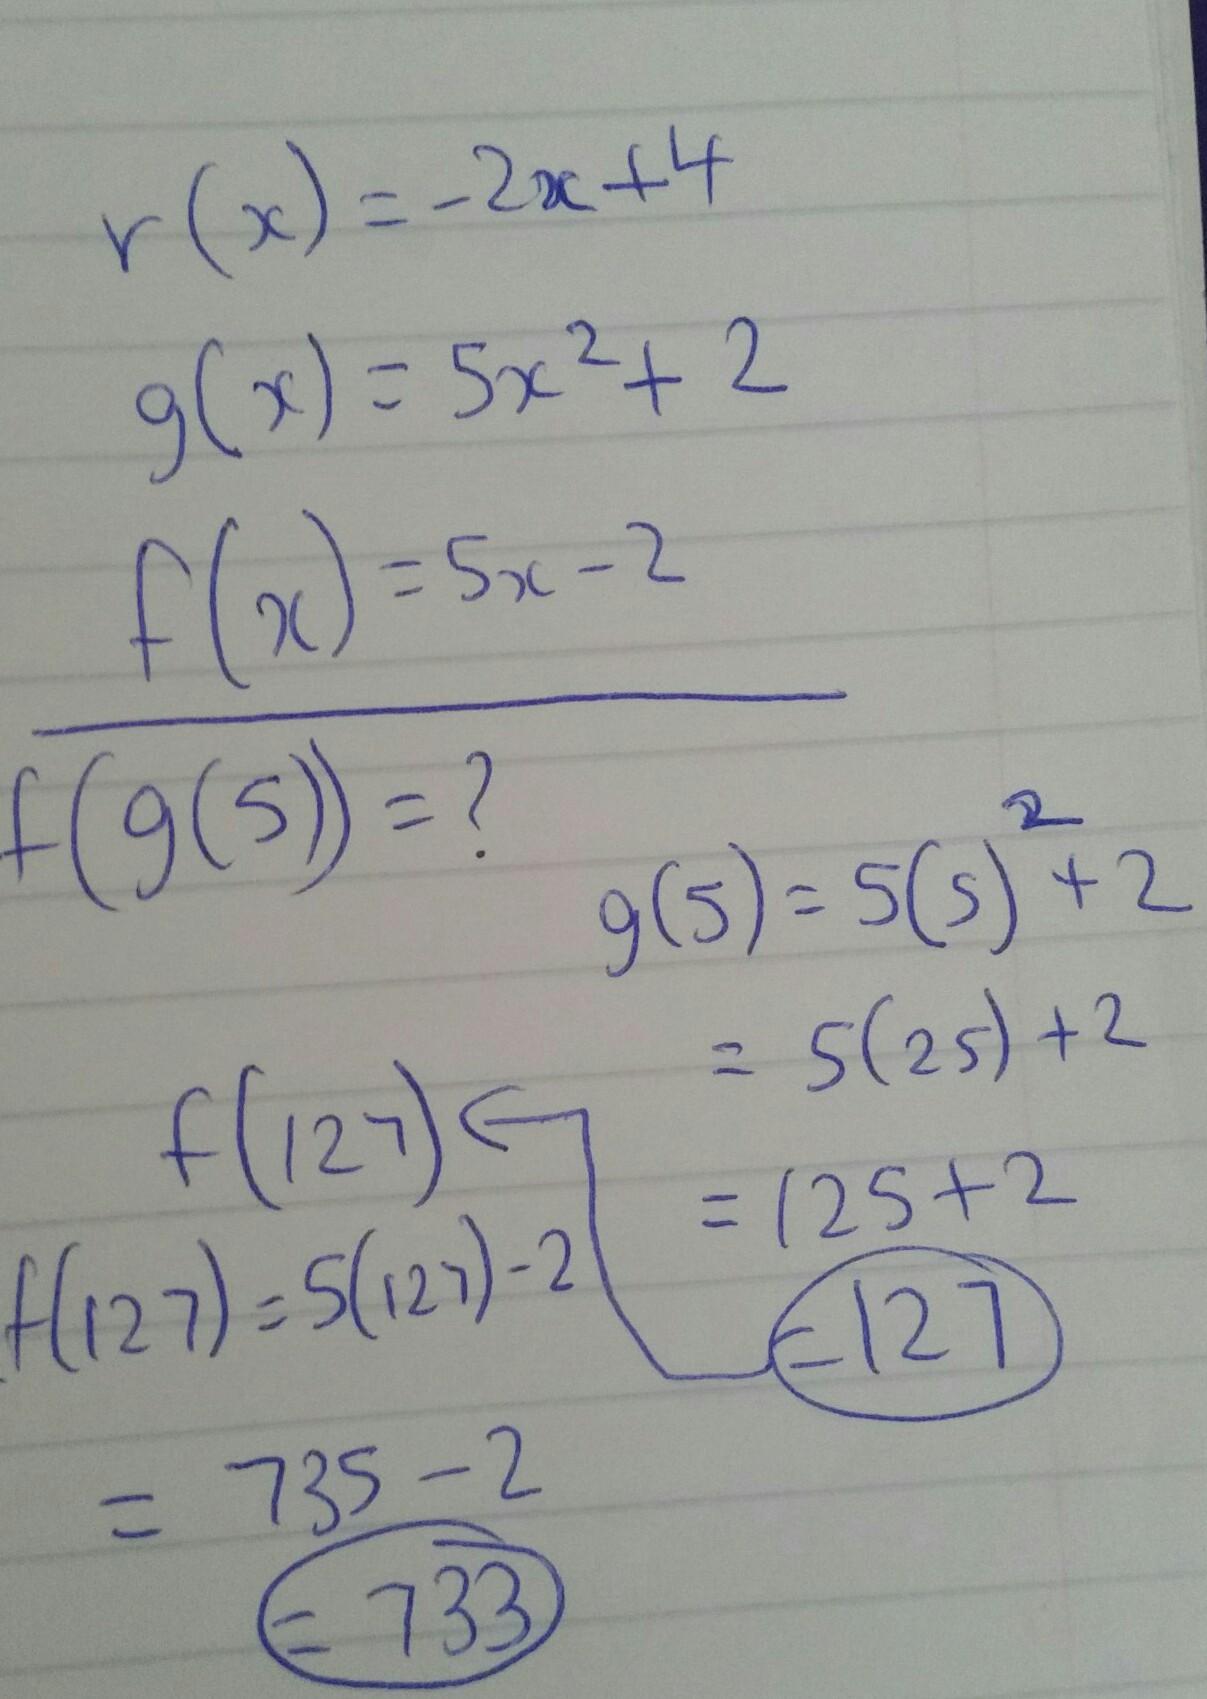 r(x) = -2x + 4
g(x) = 5x² + 2
f(x) = 5x - 2
f(g(5)) = ?
g(5) = 5(5)² + 2
= 5(25) + 2
= 125 + 2
= 127
f(127)
f(127) = 5(127) - 2
= 735 - 2
= 733